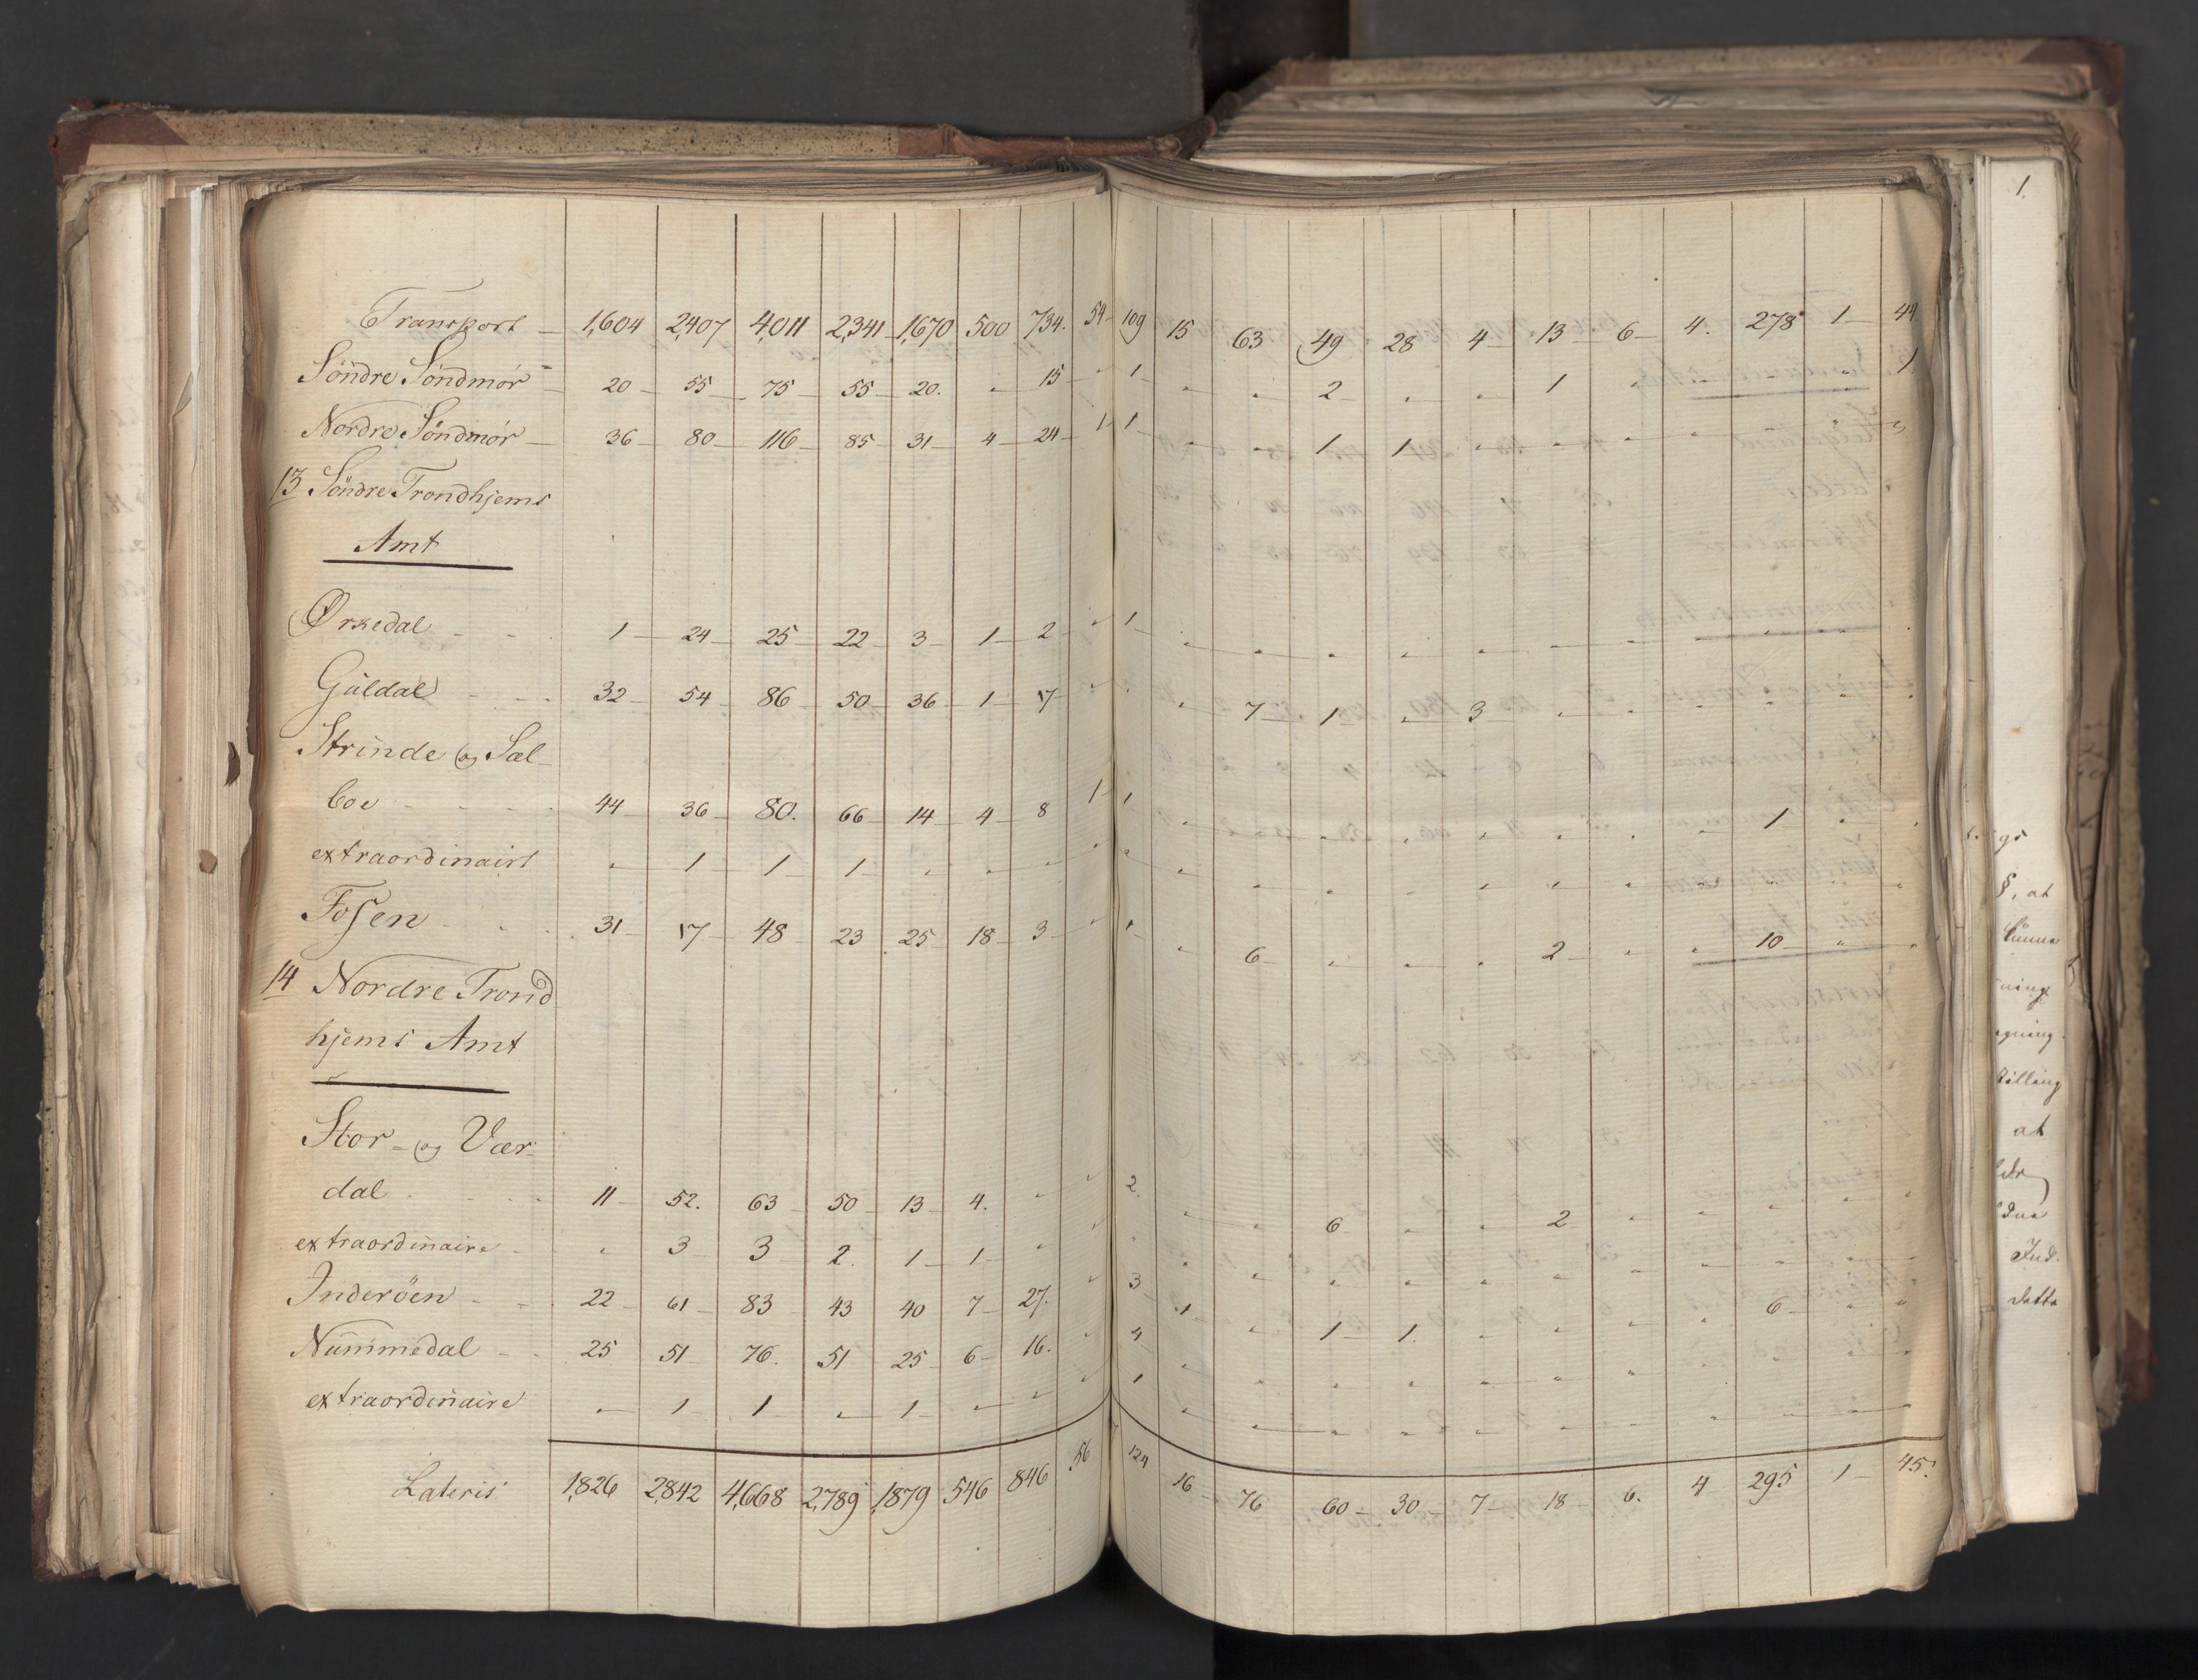 Transport – 1,604 2,407 4,011 2,341 1,670 500 734. 54 109 15 63 49 28 4 13 6 4. 278 1 44
Söndre Söndmör – 20 55 75 55 20. „ 15 „ 1 „ „ 2 „ „ 1 „ „ „ „ 1
Nordre Söndmör – 36 80 116 85 31 4 24 1 1 „ „ 1 1 „ „ „ „ „ „ „
13 Söndre Trondhjems
Amt
Ørkedal - - 1 24 25 22 3 1 2 „ 1 „ „ „ „ „ „ „ „ „ „ „
Guldal - - 32 54 86 50 36 1 17 „ „ „ 7 1 „ 3 „ „ „ „ „ „
Strinde og Sæl-
boe - - - 44 36 80. 66 14 4 8 1 1 „ „ „ „ „ „ „ „ 1 „ „
extraordinairt „ 1 1 1 „ „ „ „ „ „ „ „ „ „ „ „ „ „ „ „
Fosen - - 31 17 48 23 25 18 3 „ 1 „ 6 „ „ „ 2 „ „ 10 „ „
14 Nordre Trond
hjems Amt
Stor- og Vær-
dal - - - 11 52. 63 50 13 4. „ „ 2. „ „ 6 „ „ 2 „ „ „ „ „
extraordinaire - „ 3 3 2. 1 1 „ „ „ „ „ „ „ „ „ „ „ „ „ „
Inderöen - - 22 61 83 43 40 7 27. „ 3 1 „ 1 1. „ „ „ „ 6 „ „
Nummedal - - 25 51 76. 51 25 6 16. „ 4 „ „ „ „ „ „ „ „ „ „ „
extraordinaire „ 1 1 „ 1 „ „ „ 1 „ „ „ „ „ „ „ „ „ „ „
Lateris 1,826 2,842 4,668 2,789 1,879 546 846 56 124 16 76 60 30 7 18 6. 4 295 1 45.
1.
§, at
at
Ind.
dette